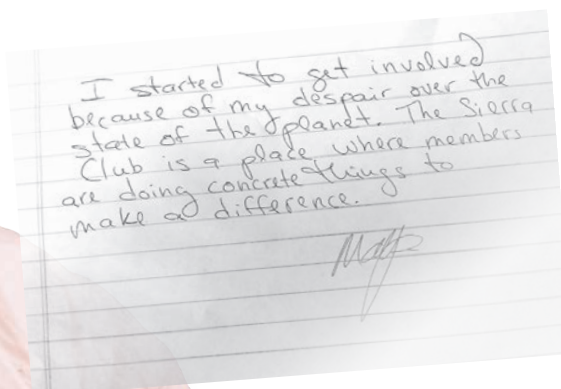 I started to get involved
because of my despair over the
state of the planet. The Sierra
Club is a place where members
are doing concrete things to
make a difference.